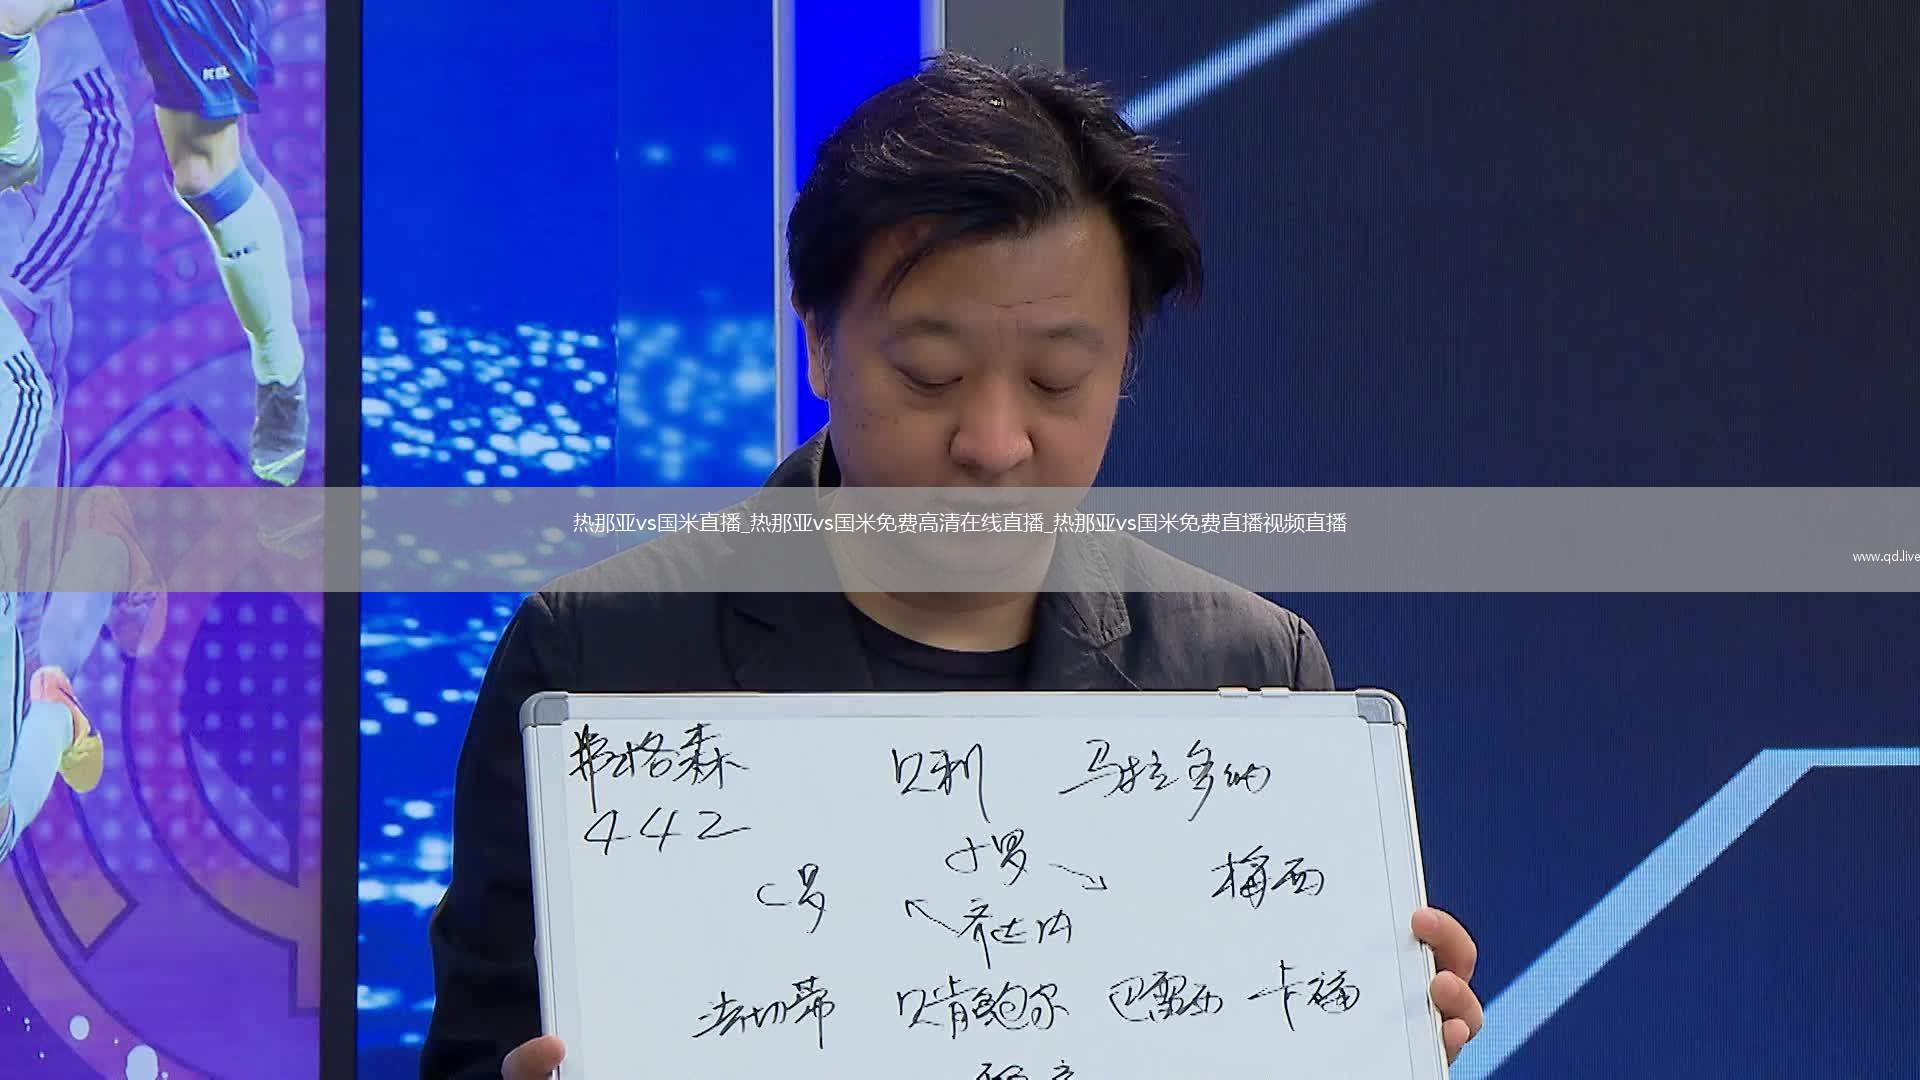 热那亚vs国米直播_热那亚vs国米免费高清在线直播_热那亚vs国米免费直播视频直播
www.qd.live
弗格森 贝利 马拉多纳
442
小罗
C罗 梅西
齐达内
法切蒂 贝肯鲍尔 巴雷西 卡福